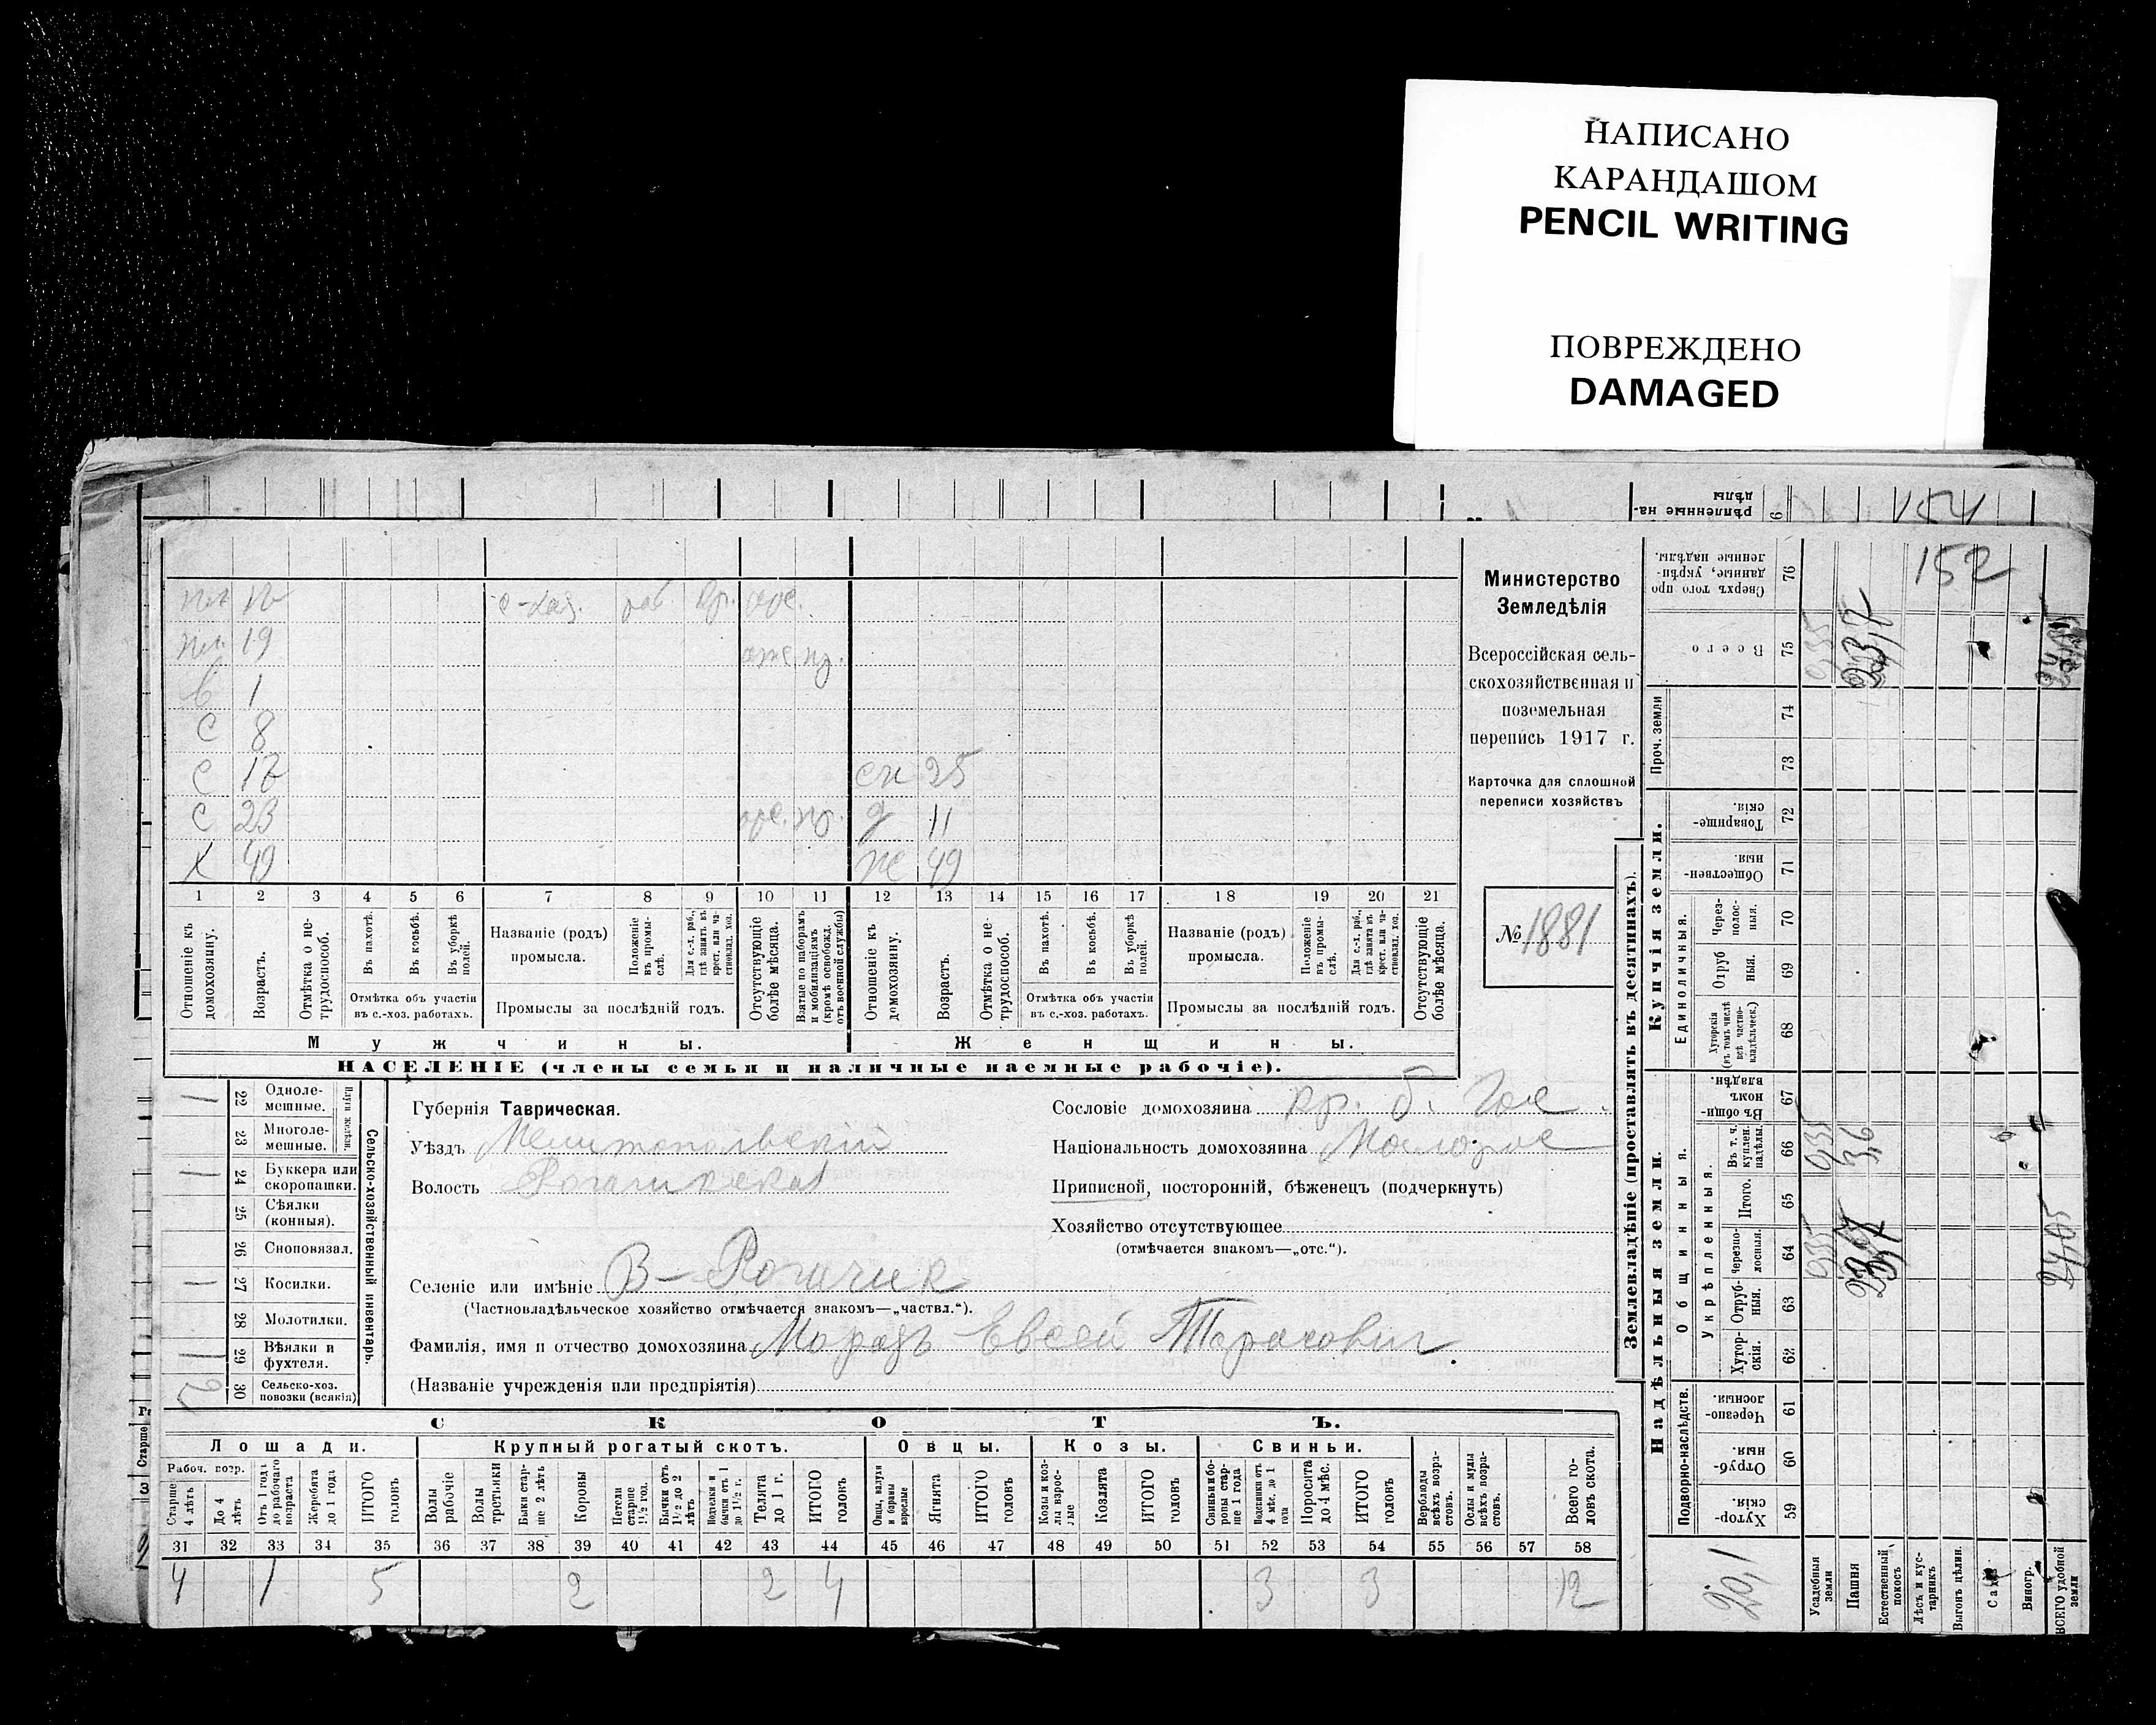 НАПИСАНО
КАРАНДАШОМ
PENCIL WRITING
ПОВРЕЖДЕНО
DAMAGED
рѣпленные на-
дѣлы
6
154
152
19
1
С 8
С 17
С 23
Х 49
сн 25
д 11
ж 49
1 2 3 4 5 6 7 8 9 10 11 12 13 14 15 16 17 18 19 20 21
Отношеніе къ домохозяину.
Возрастъ.
Отмѣтка о не-трудоспособ.
Въ пахотѣ.
Въ косьбѣ.
Въ уборкѣ полей.
Отмѣтка объ участіи въ с.-хоз. работахъ.
Названіе (родъ) промысла.
Положеніе въ промы-слѣ.
Для с.-х. раб., гдѣ занятъ въ крест. или ча-стновлад. хоз.
Промыслы за послѣдній годъ.
Отсутствующіе болѣе мѣсяца.
Взятые по наборамъ и мобилизаціямъ (кромѣ освобожд. отъ военной службы)
Отношеніе къ домохозяину.
Возрастъ.
Отмѣтка о не-трудоспособ.
Въ пахотѣ.
Въ косьбѣ.
Въ уборкѣ полей.
Отмѣтка объ участіи въ с.-хоз. работахъ.
Названіе (родъ) промысла.
Положеніе въ промы-слѣ.
Для с.-х. раб., гдѣ занятъ въ крест. или ча-стновлад. хоз.
Промыслы за послѣдній годъ.
Отсутствующіе болѣе мѣсяца.
Мужчины. Женщины.
НАСЕЛЕНІЕ (члены семьи и наличные наемные рабочіе).
Министерство
Земледѣлія
Всероссійская сель-
скохозяйственная и
поземельная
перепись 1917 г.
Карточка для сплошной
переписи хозяйствъ
№ 1881
Сельско-хозяйственный инвентарь.
Плуги желѣзн.
1 22 Одноле-мешные.
23 Многоле-мешные.
1 24 Буккера или скоропашки.
25 Сѣялки (конныя).
26 Сноповязал.
1 27 Косилки.
28 Молотилки.
1 29 Вѣялки и фухтеля.
2 30 Сельско-хоз. повозки (всякія)
Губернія Таврическая.
Уѣздъ Мелитопольскій
Волость Рогачикская
Селеніе или имѣніе В-Рогачик
(Частновладѣльческое хозяйство отмѣчается знакомъ—„частвл.“).
Фамилія, имя и отчество домохозяина Мораз Евсей Тарасович.
(Названіе учрежденія или предпріятія)
Сословіе домохозяина кр. б. Гос.
Національность домохозяина Малорос
Приписной, посторонній, бѣженецъ (подчеркнуть)
Хозяйство отсутствующее
(отмѣчается знакомъ—„отс.“).
СКОТЪ.
Лошади. Крупный рогатый скотъ. Овцы. Козы. Свиньи.
Рабоч. возр.
Старше 4 лѣтъ
До 4 лѣтъ.
Отъ 1 года до рабочаго возраста
Жеребята до 1 года
ИТОГО головъ
Волы рабочіе
Волы третьяки
Быки стар-ше 2 лѣтъ
Коровы
Нетели старше 1½ год.
Бычки отъ 1½ до 2 лѣтъ
Подтелки и бычки отъ 1 до 1½ г.
Телята до 1 г.
ИТОГО головъ
Овцы, валухи и бараны взрослые
Ягнята
ИТОГО головъ
Козы и коз-лы взрос-лые
Козлята
ИТОГО головъ
Свиньи и бо-ровы стар-ше 1 года
Подсвинки отъ 4 мѣс. до 1 года
Поросята до 4 мѣс.
ИТОГО головъ
Верблюды всѣхъ возра-стовъ.
Ослы и мулы всѣхъ возра-стовъ.
Всего го-ловъ скота.
31 32 33 34 35 36 37 38 39 40 41 42 43 44 45 46 47 48 49 50 51 52 53 54 55 56 57 58
4 1 5 2 2 4 3 3 12
Землевладѣніе (проставлять въ десятинахъ).
Надѣльныя земли. Купчія земли.
Подворно-наслѣдств.
Общинныя.
Укрѣпленныя.
Единоличныя.
Проч. земли
Хутор-скія. 59
Отруб-ныя. 60
Черезпо-лосныя. 61
Хутор-скія. 62
Отруб-ныя. 63
Черезпо-лосныя. 64
Итого. 65
Въ т. ч. куплен. надѣлы. 66
Въ общи-номъ владѣн. 67
Хуторскія (въ томъ числѣ всѣ частно-владѣльческ.) 68
Отруб ныя. 69
Через-полос-ныя. 70
Обществен-ныя. 71
Товарище-скія. 72
73
74
Всего 75
Сверхъ того про-данные, укрѣп-ленные надѣлы. 76
20,1
Усадебныя земли
Пашня
Естественный покосъ
Лѣсъ и кус-тарникъ
Выгонъ цѣлин.
Виногр.
ВСЕГО удобной земли
0,35
0,35
3,6
0,35